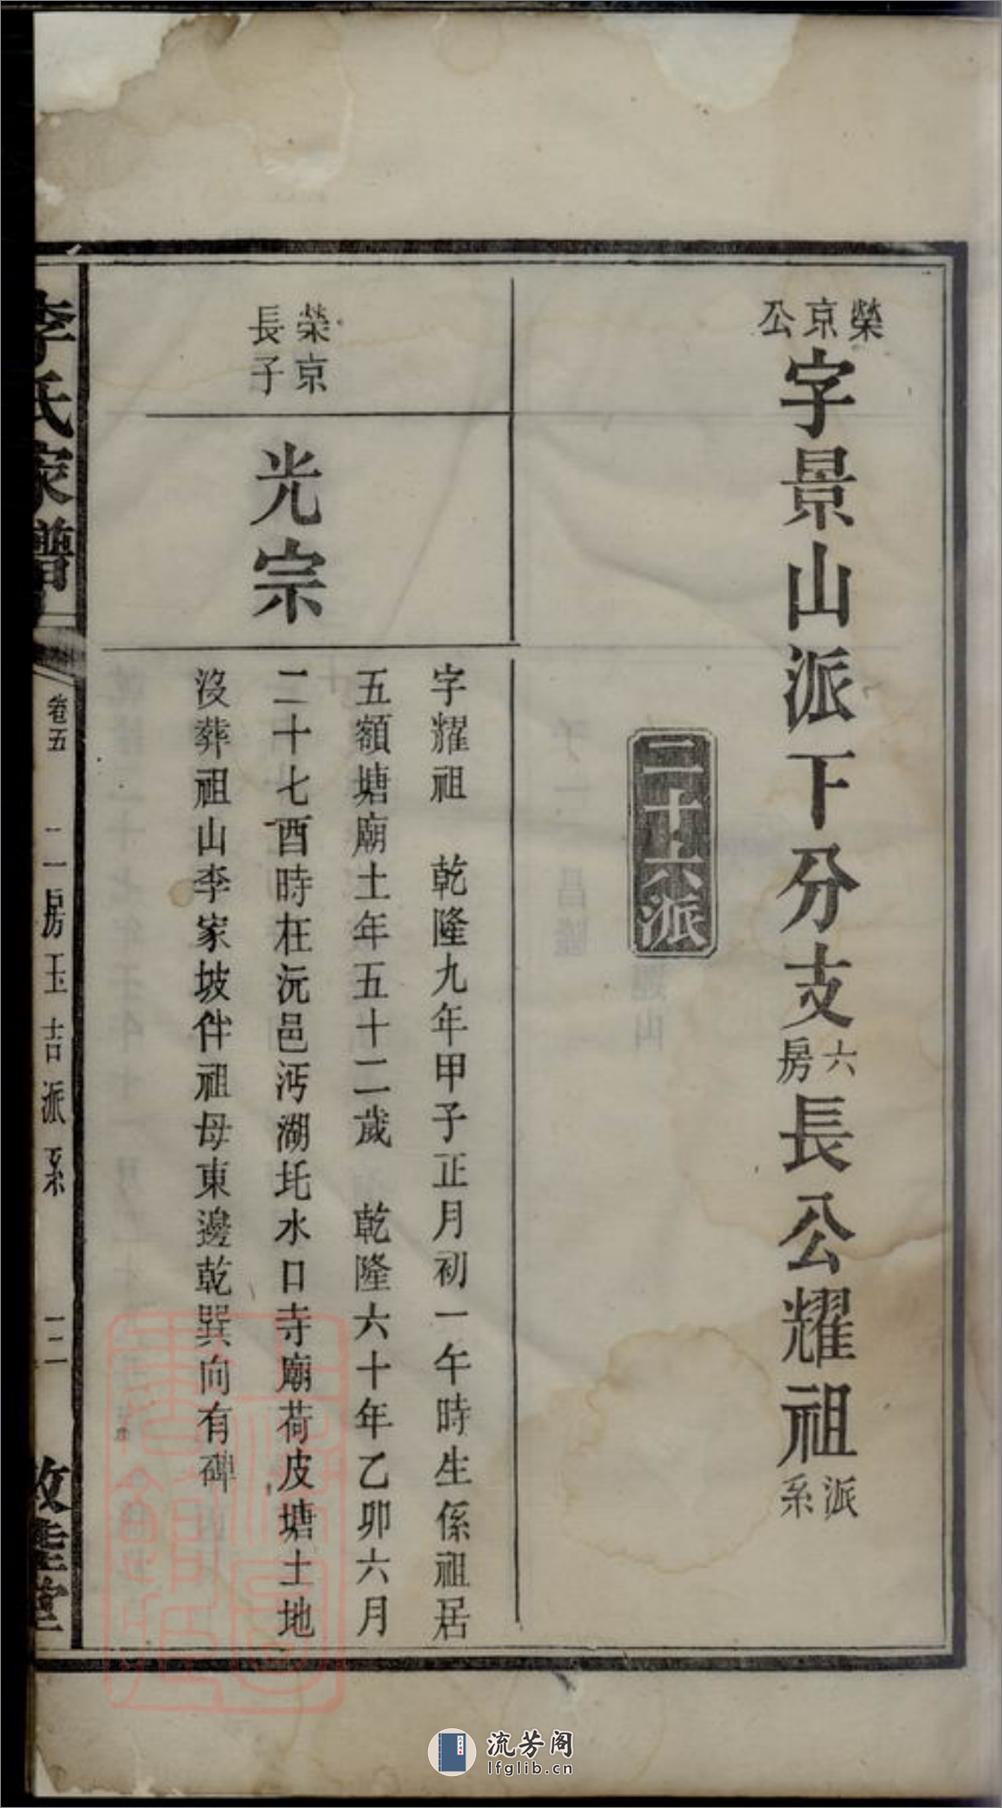 榮京公字景山派下分支六房長公耀祖派系
二十六派
榮京
長子
光宗
字耀祖　乾隆九年甲子正月初一午時生係祖居
五額塘廟土年五十二歲　乾隆六十年乙卯六月
二十七酉時在沅邑沔湖圫水口寺廟荷皮塘土地
沒葬祖山李家坡伴祖母東邊乾巽向有碑
李氏家譜
卷五
二房玉吉派系
三
敦睦堂
流芳阁
lfglib.cn